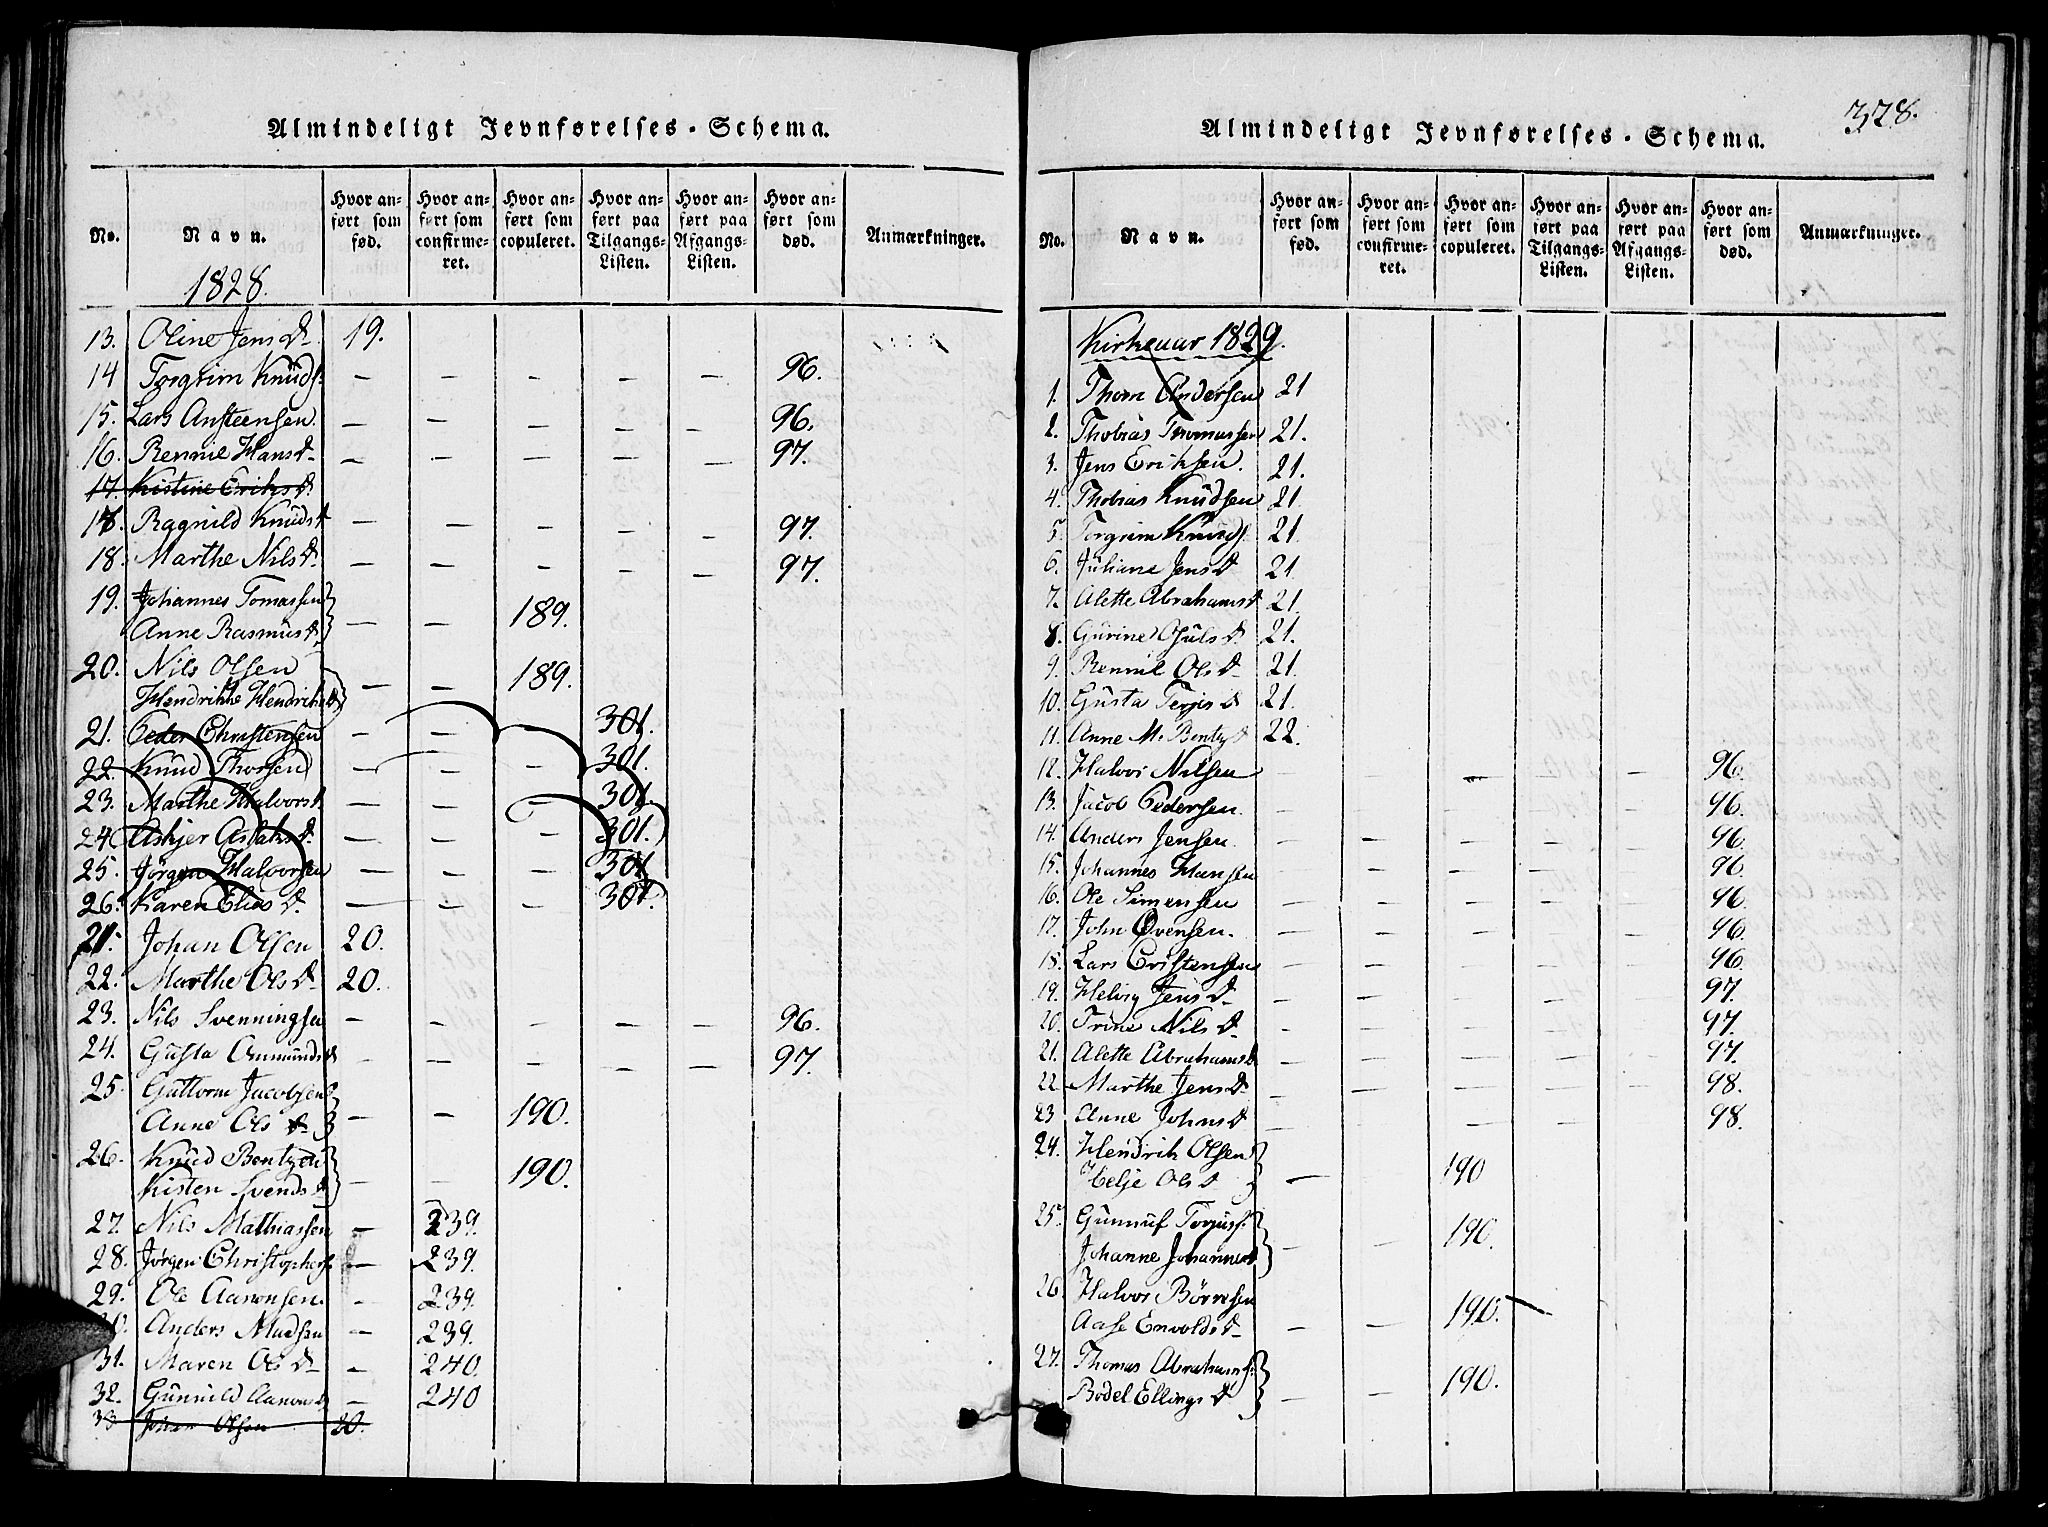 Almindeligt Jevnførelses-Schema.
No.
Navn.
Hvor anført som fød.
Hvor anført som confirmeret.
Hvor anført som copuleret.
Hvor anført paa Tilgangs-Listen.
Hvor anført paa Afgangs-Listen.
Hvor anført som død.
Anmærkninger.
1828.
13. Oline Jens D. 19.
14 Torgrim Knuds. – – – – – 96.
15. Lars Ansteensen. – – – – – 96.
16. Rennie Hans D. – – – – – 97.
17. Kistine Eriks D.
18. Ragnild Knuds D – – – – – 97.
18. Marthe Nils D. – – – – – 97.
19. Johannes Tomassen
Anne Rasmus D. – – 189.
20. Nils Olsen
Hendrikke Hendriks D – – 189.
21. Peder Christensen – – – 301.
22. Knud Thorsen – – – 301.
23. Marthe Halvors D. – – – 301.
24 Askjer Aslaks D. – – – 301.
25. Jörgen Halvorsen – – – 301
26. Karen Elias D. – – – 301.
21. Johan Olsen 20.
22. Marthe Ols D. 20.
23. Nils Svenningsen – – – – – 96.
24. Gusta Ammunds D – – – – – 97.
25. Guttorm Jacobsen
Anne Ols D. – – 190.
26. Knud Bentzen
Kisten Svends D – – 190.
27. Nils Mathiassen – 239.
28. Jörgen Christophers. – 239.
29. Ole Aaronsen. – 239.
30. Anders Madsen – 239.
31. Maren Ols D. – 240.
32. Gunnild Aarons D – 240
33 Johan Olsen 20.
328.
Almindeligt Jevnførelses-Schema.
No.
Navn.
Hvor anført som fød.
Hvor anført som confirmeret.
Hvor anført som copuleret.
Hvor anført paa Tilgangs-Listen.
Hvor anført paa Afgangs-Listen.
Hvor anført som død.
Anmærkninger.
Kirkeaar 1829.
1. Thom Andersen 21
2. Thobias Thomassen 21.
3. Jens Eriksen. 21.
4. Thobias Knudsen 21
5. Torgrim Knuds. 21.
6. Juliane Jens D. 21.
7. Alette Abrahams D 21.
8. Gurine Osuls D. 21.
9. Rennie Ols D. 21.
10. Gusta Terjes D. 21.
11. Anne M. Bentz D 22.
12. Halvor Nilsen – – – – – 96.
13. Jacob Pedersen. – – – – – 96.
14. Anders Jensen. – – – – – 96.
15. Johannes Hansen – – – – – 96.
16. Ole Simensen – – – – – 96.
17. John Evensen. – – – – – 96.
18. Lars Cristensen – – – – – 96.
19. Helvig Jens D. – – – – – 97.
20. Trine Nils D. – – – – – 97.
21. Alette Abrahams D – – – – – 97.
22. Marthe Jens D. – – – – – 98.
23 Anne Johns D. – – – – – 98.
24. Hendrik Olsen
Helje Ols D – 190
25. Gunnuf Torjuss.
Johanne Johannes D – – 190.
26. Halvor Börresen
Aase Envolds D. – – 190. –
27. Thomas Abrahams.
Bodel Ellings D. – – 190.